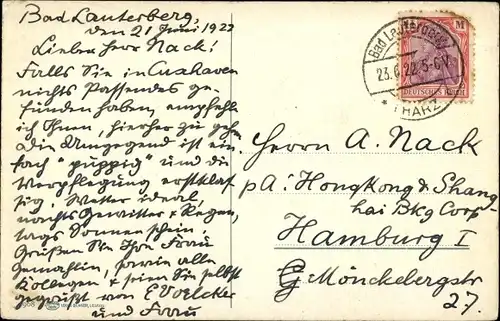 Bad Lauterberg,
den 21 Juni 1922
Lieber Herr Nack!
Falls Sie in Cuxhaven
nichts Passendes ge-
funden haben, empfehle
ich Ihnen, hierher zu gehn
Die Umgegend ist ein-
fach "puppig" und die
Verpflegung erstklas-
sig. Wetter ideal,
nachts Gewitter & Regen,
tags Sonnenschein.
Grüßen Sie Ihre Frau
Gemahlin, sowie alle
Kollegen & seien Sie selbst
gegrüßt von E Voelcker
und Frau
Bad Lauterberg
23.6.22.5-6 V.
* (HARZ)
M
DEUTSCHES REICH
Herrn A. Nack
pA: Hongkong & Shang
hai Bkg Corp
Hamburg I
Gr. Mönckebergstr
27.